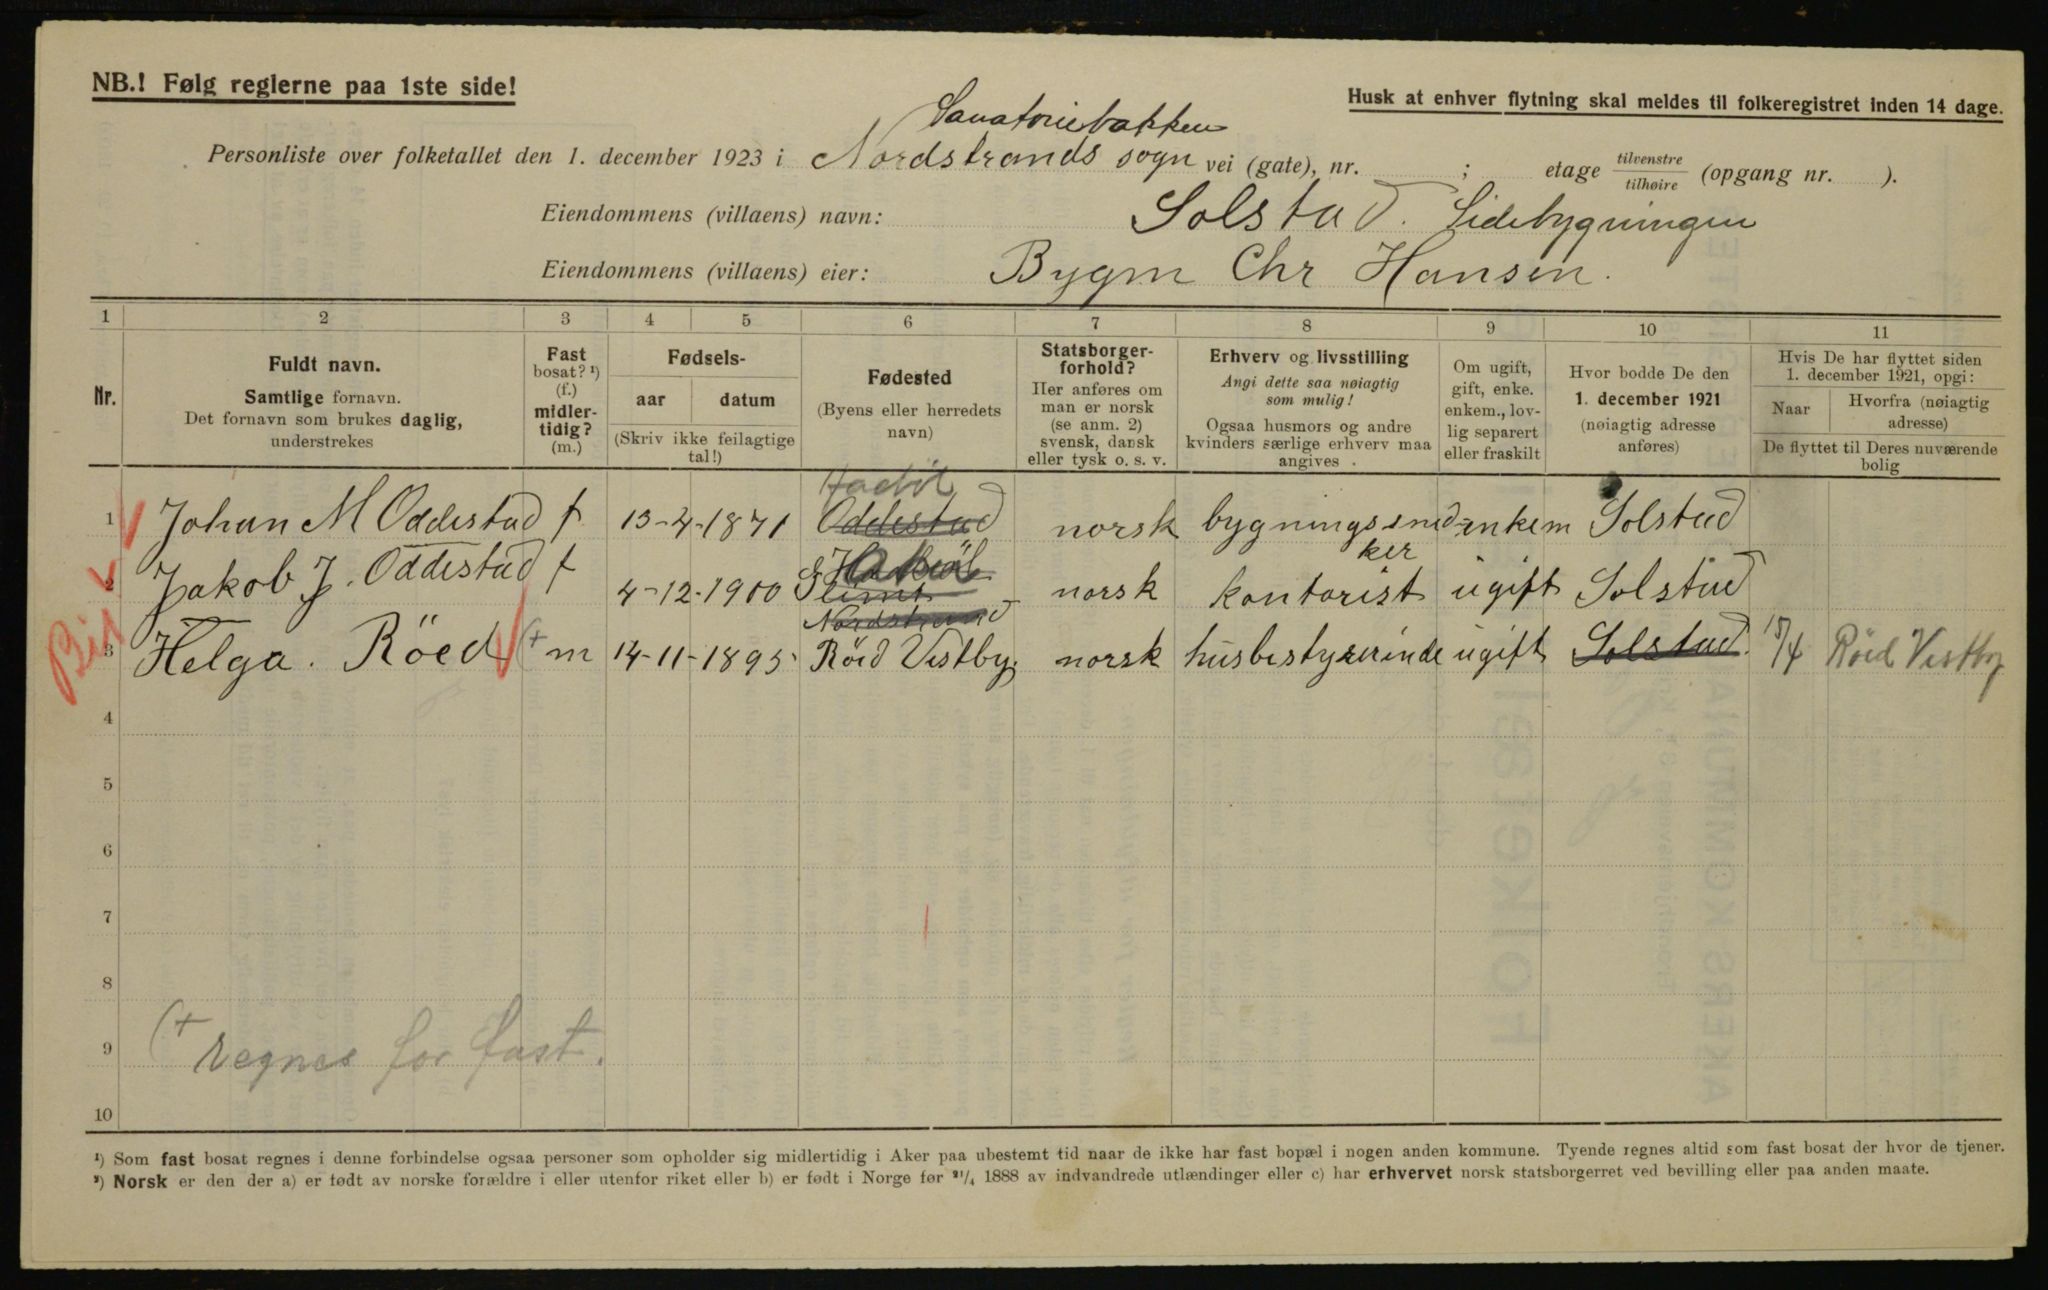 NB.! Følg reglerne paa 1ste side!
Husk at enhver flytning skal meldes til folkeregistret inden 14 dage.
Sanatoriebakken
Personliste over folketallet den 1. december 1923 i Nordstrands sogn vei (gate), nr. ; etage tilvenstre tilhøire (opgang nr. ).
Eiendommens (villaens) navn: Solstad. Sidebygningen
Eiendommens (villaens) eier: Bygm Chr Hansen.
1 2 3 4 5 6 7 8 9 10 11
Nr.
Fuldt navn.
Samtlige fornavn.
Det fornavn som brukes daglig,
understrekes
Fast
bosat? ¹)
(f.)
midler-
tidig?
(m.)
Fødsels-
aar datum
(Skriv ikke feilagtige
tal!)
Fødested
(Byens eller herredets
navn)
Statsborger-
forhold?
Her anføres om
man er norsk
(se anm. 2)
svensk, dansk
eller tysk o. s. v.
Erhverv og livsstilling
Angi dette saa nøiagtig
som mulig!
Ogsaa husmors og andre
kvinders særlige erhverv maa
angives .
Om ugift,
gift, enke.
enkem., lov-
lig separert
eller fraskilt
Hvor bodde De den
1. december 1921
(nøiagtig adresse
anføres)
Hvis De har flyttet siden
1. december 1921, opgi:
Naar
Hvorfra (nøiagtig
adresse)
De flyttet til Deres nuværende
bolig
1 Johan M Oddestad f 13-4-1871 Oddestad norsk bygningssned- enkem Solstad
ker
2 Jakob J. Oddestad f 4-12-1900 norsk kontorist ugift Solstad
Nordstrand
3 Helga. Röed (+ m 14-11-1895 Röed Vestby norsk husbestyrerinde ugift Solstad. 15/4 Röed Vestby
4
5
6
7
8
9
10
(+ regnes for fast.
¹) Som fast bosat regnes i denne forbindelse ogsaa personer som opholder sig midlertidig i Aker paa ubestemt tid naar de ikke har fast bopæl i nogen anden kommune. Tyende regnes altid som fast bosat der hvor de tjener.
²) Norsk er den der a) er født av norske forældre i eller utenfor riket eller b) er født i Norge før ²¹/₄ 1888 av indvandrede utlændinger eller c) har erhvervet norsk statsborgerret ved bevilling eller paa anden maate.